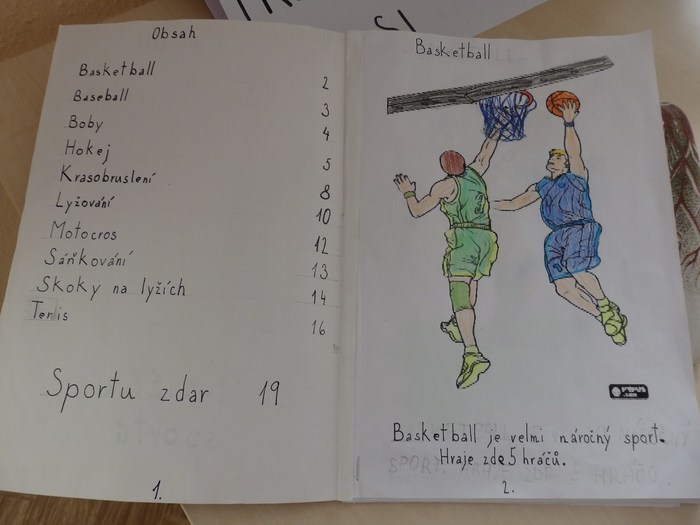 Obsah
Basketball 2
Baseball 3
Boby 4
Hokej 5
Krasobruslení 8
Lyžování 10
Motocros 12
Sáňkování 13
Skoky na lyžích 14
Tenis 16
Sportu zdar 19
1.
Basketball
Basketball je velmi náročný sport.
Hraje zde 5 hráčů.
2.